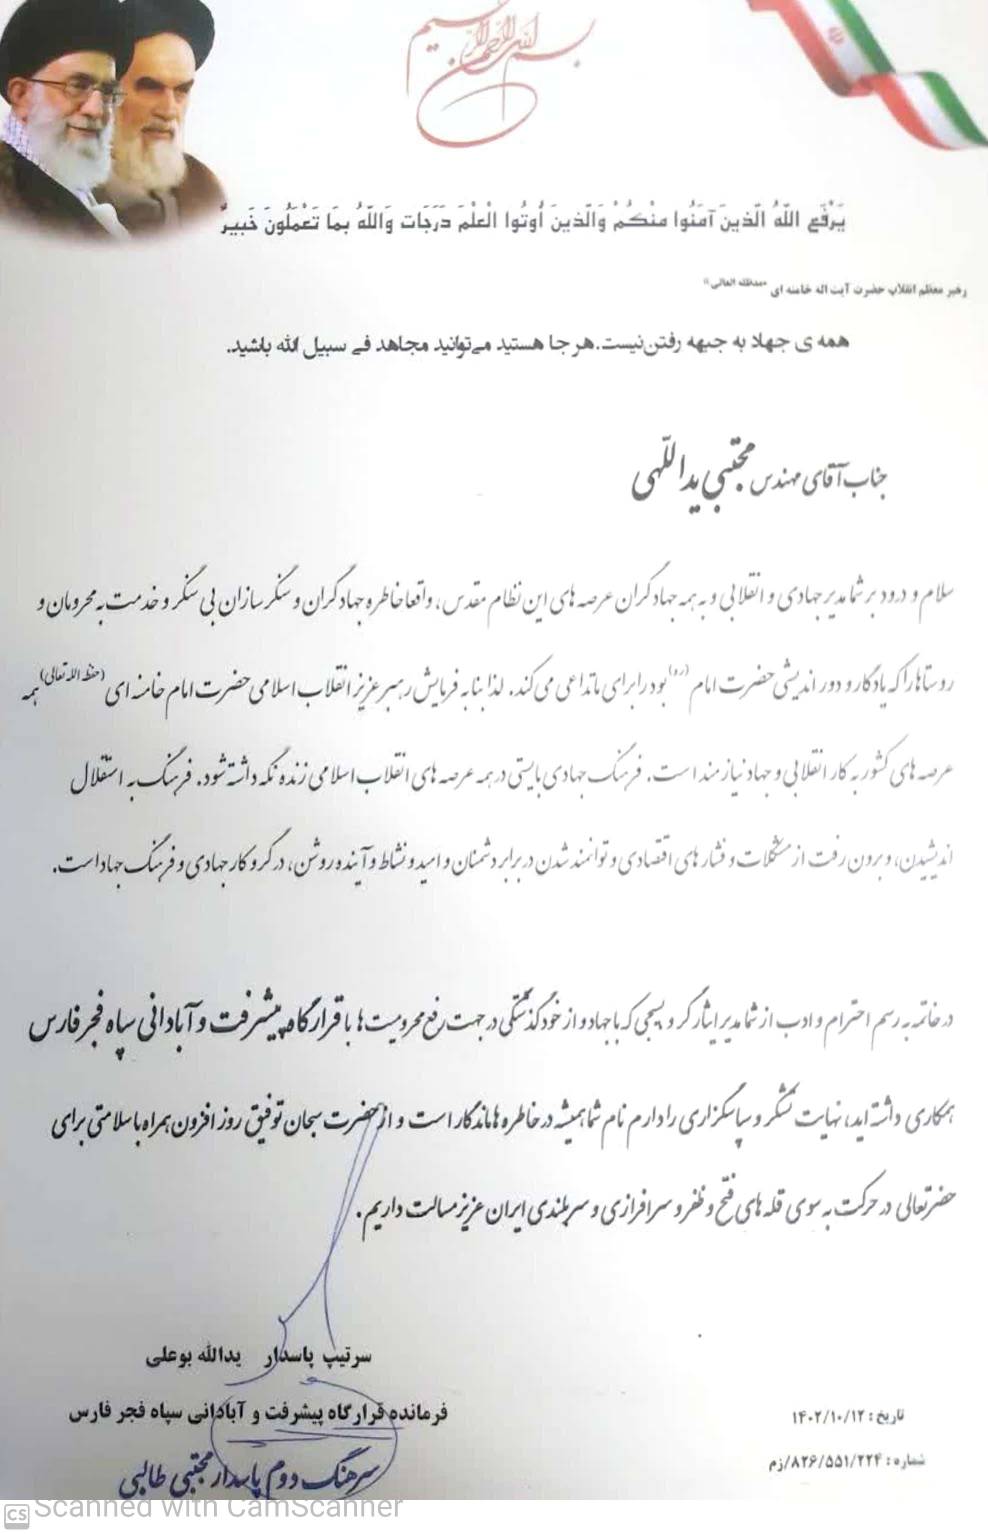 بسم الله الرحمن الرحیم
یَرْفَعِ اللَّهُ الَّذِینَ آمَنُوا مِنْکُمْ وَالَّذِینَ أُوتُوا الْعِلْمَ دَرَجَاتٍ وَاللَّهُ بِمَا تَعْمَلُونَ خَبِیرٌ
رهبر معظم انقلاب حضرت آیت اله خامنه ای «مدظله العالی»
همه ی جهاد به جبهه رفتن نیست.هر جا هستید می‌توانید مجاهد فے سبیل الله باشید.
جناب آقای مهندس مجتبی یداللّهی
سلام و درود بر شما مدیر جهادی و انقلابی و به همه جهادگران عرصه های این نظام مقدس، واقعا خاطره جهادگران و سنگرسازان بی سنگر و خدمت به محرومان و
روستاها را که یادگار و دوراندیشی حضرت امام (ره) بود را برای ما تداعی می کند. لذا بنا به فرمایش رهبر عزیز انقلاب اسلامی حضرت امام خامنه ای (حفظه الله تعالی) همه
عرصه های کشور به کار انقلابی و جهاد نیازمند است. فرهنگ جهادی بایستی در همه عرصه های انقلاب اسلامی زنده نگه داشته شود. فرهنگ به استقلال
اندیشیدن، و برون رفت از مشکلات و فشارهای اقتصادی و توانمند شدن در برابر دشمنان و امید و نشاط و آینده روشن، در گرو کار جهادی و فرهنگ جهاد است.
در خاتمه به رسم احترام و ادب از شما مدیر ایثارگر و بسیجی که با جهاد و از خودگذشتگی در جهت رفع محرومیت ها با قرارگاه پیشرفت و آبادانی سپاه فجر فارس
همکاری داشته اید، نهایت تشکر و سپاسگزاری را دارم نام شما همیشه در خاطره ها ماندگار است و از حضرت سبحان توفیق روز افزون همراه با سلامتی برای
حضرتعالی در حرکت به سوی قله های فتح و ظفر و سرافرازی و سربلندی ایران عزیز مسالت داریم.
سرتیپ پاسدار یدالله بوعلی
فرمانده قرارگاه پیشرفت و آبادانی سپاه فجر فارس
سرهنگ دوم پاسدار مجتبی طالبی
تاریخ: ۱۴۰۲/۱۰/۱۲
شماره: ۸۲۶/۵۵۱/۲۲۴/زم
CS Scanned with CamScanner